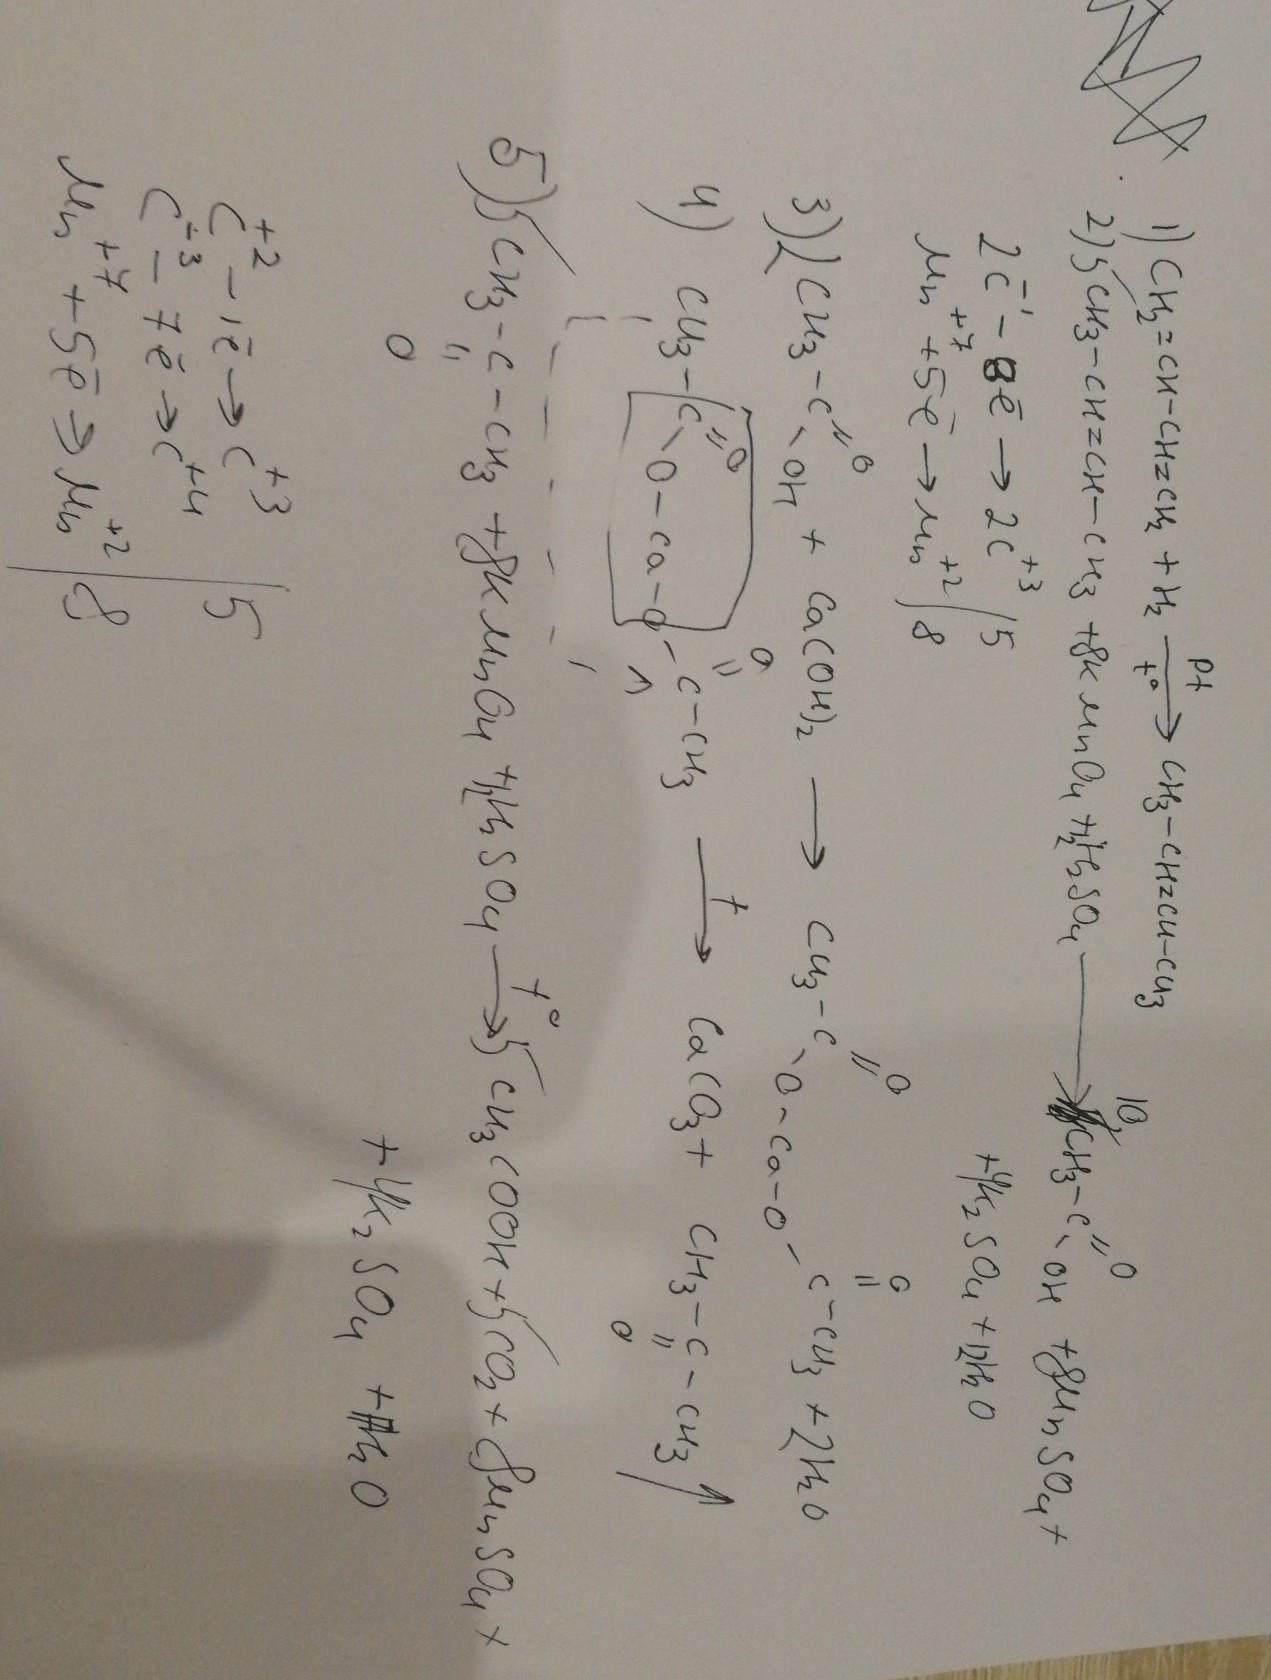 1) CH₂=CH-CH=CH₂ + H₂ —Pt, t°→ CH₃-CH=CH-CH₃
2) 5CH₃-CH=CH-CH₃ + 8KMnO₄ + 12H₂SO₄ → 10CH₃-C(=O)-OH + 8MnSO₄ +
+ 4K₂SO₄ + 12H₂O
2C⁻¹ - 8ē → 2C⁺³ | 5
Mn⁺⁷ + 5ē → Mn⁺² | 8
3) 2CH₃-C(=O)-OH + Ca(OH)₂ → CH₃-C(=O)-O-Ca-O-C(=O)-CH₃ + 2H₂O
4) CH₃-C(=O)-O-Ca-O-C(=O)-CH₃ —t→ CaCO₃ + CH₃-C(=O)-CH₃↑
5) 5CH₃-C(=O)-CH₃ + 8KMnO₄ + 12H₂SO₄ —t°→ 5CH₃COOH + 5CO₂ + 8MnSO₄ +
+ 4K₂SO₄ + H₂O
C⁺² - 1ē → C⁺³
C⁻³ - 7ē → C⁺⁴ | 5
Mn⁺⁷ + 5ē → Mn⁺² | 8